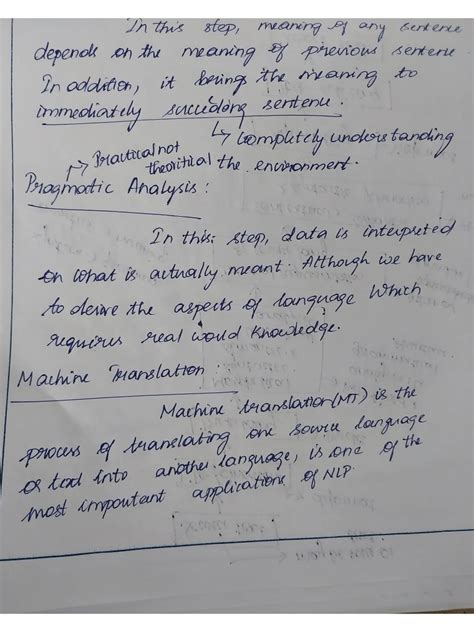 In this step, meaning of any sentence
depends on the meaning of previous sentence.
In addition, it brings the meaning to
immediately succeding sentence.
↳ completely understanding
the environment.
↱ Practical not
theoritical
Pragmatic Analysis :
In this step, data is interpreted
on what is actually meant. Although we have
to derive the aspects of language which
requires real would knowledge.
Machine Translation :
Machine translation (MT) is the
process of translating one source language
or text into another language, is one of the
most important applications of NLP.